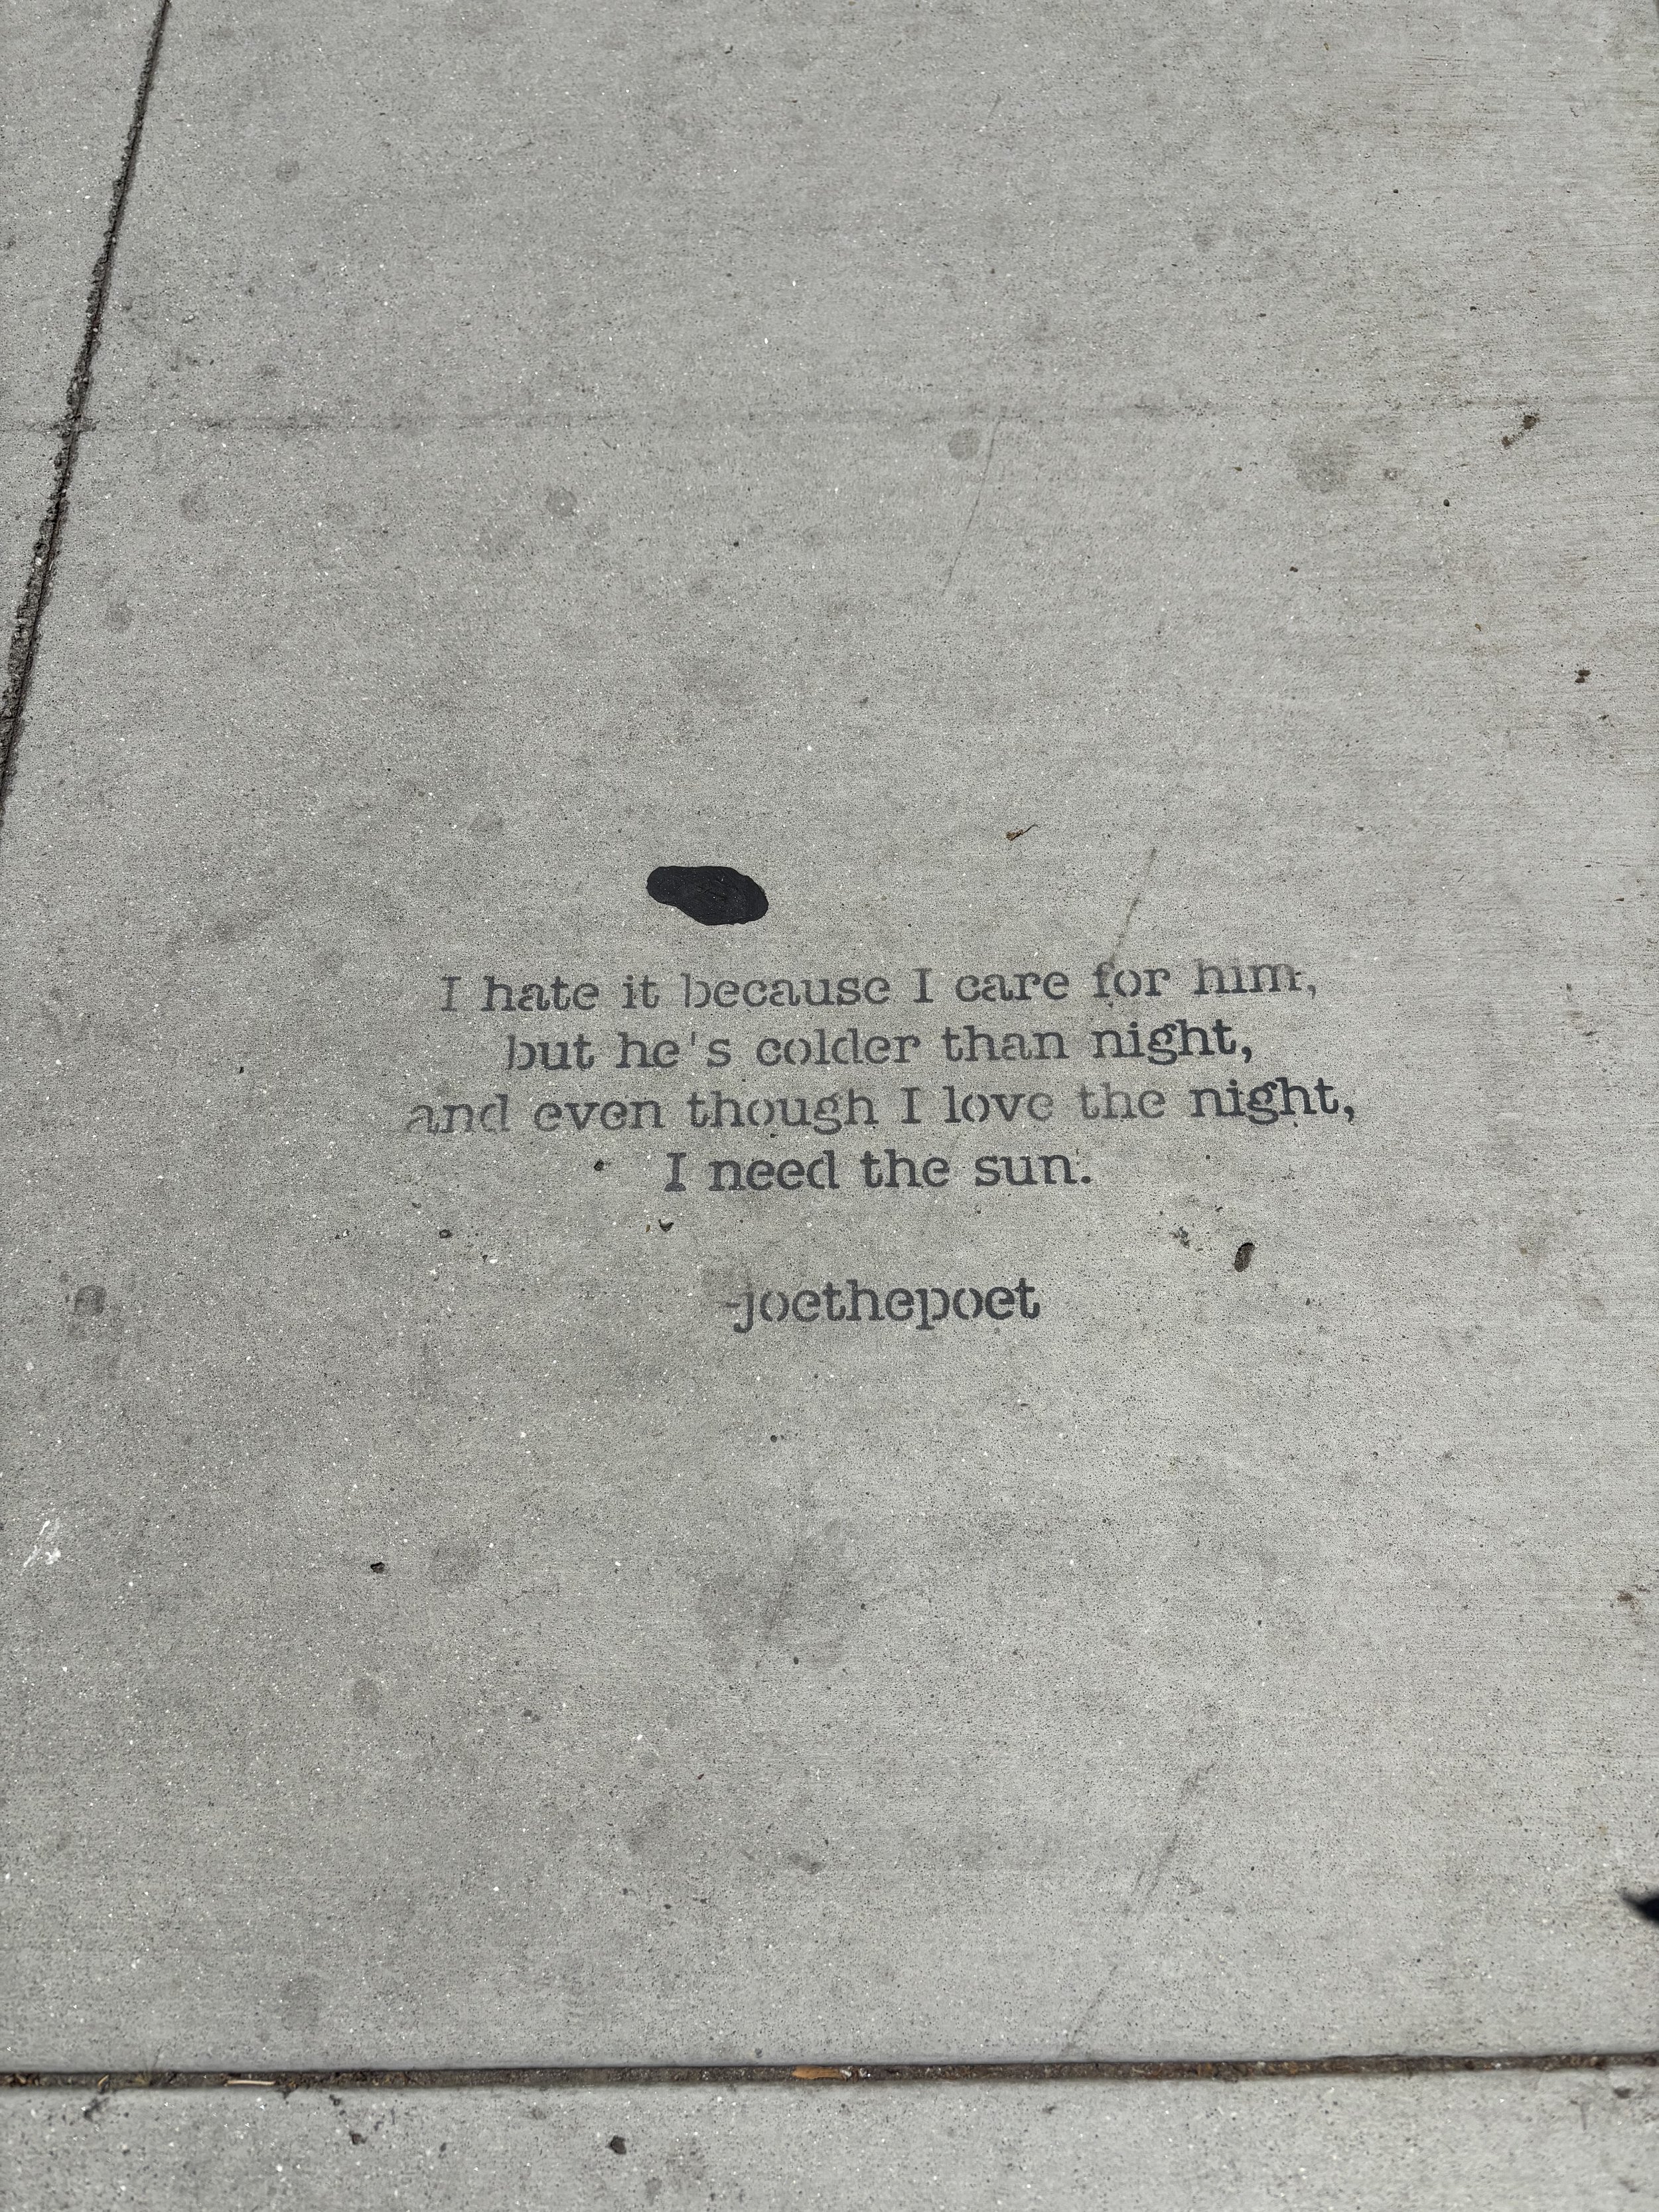 I hate it because I care for him,
but he's colder than night,
and even though I love the night,
I need the sun.
-joethepoet